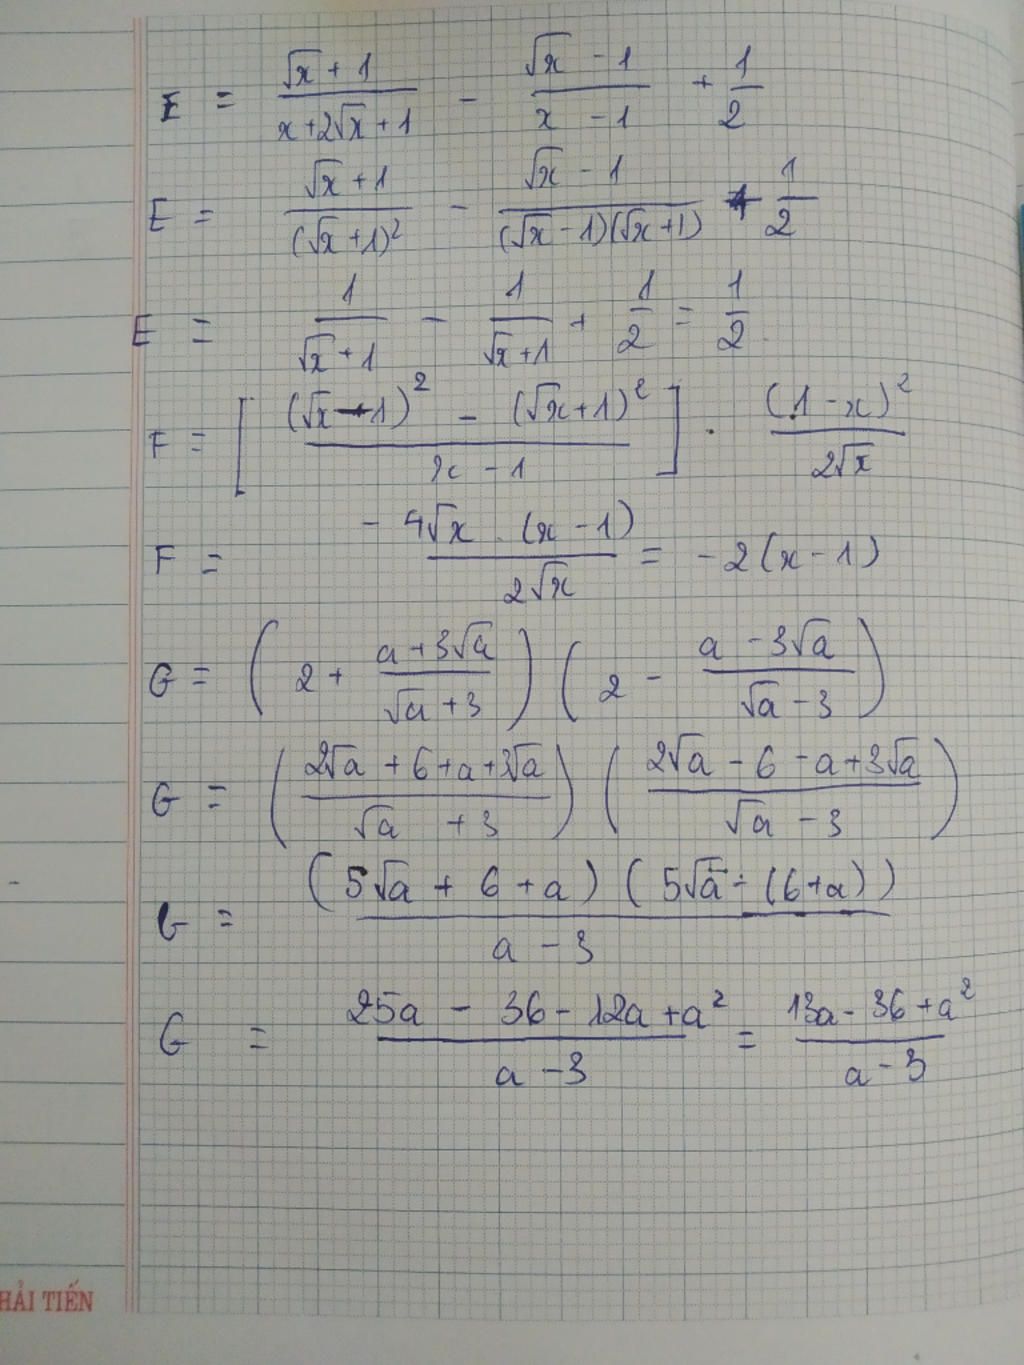 E = (√x + 1)/(x + 2√x + 1) - (√x - 1)/(x - 1) + 1/2
E = (√x + 1)/((√x + 1)²) - (√x - 1)/((√x - 1)(√x + 1)) + 1/2
E = 1/(√x + 1) - 1/(√x + 1) + 1/2 = 1/2.
F = [((√x - 1)² - (√x + 1)²)/(x - 1)] . (1 - x)²/(2√x)
F = (-4√x . (x - 1))/(2√x) = -2(x - 1)
G = (2 + (a + 3√a)/(√a + 3)) (2 - (a - 3√a)/(√a - 3))
G = ((2√a + 6 + a + 3√a)/(√a + 3)) ((2√a - 6 - a + 3√a)/(√a - 3))
G = ((5√a + 6 + a)(5√a - (6 + a)))/(a - 3)
G = (25a - 36 - 12a + a²)/(a - 3) = (13a - 36 + a²)/(a - 3)
HẢI TIẾN